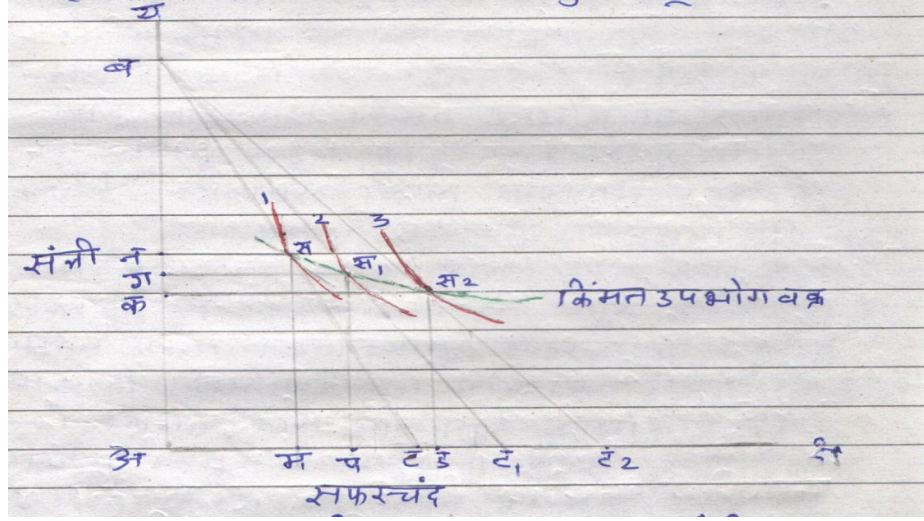 य
ब
1 2 3
संत्री न स स₁ स₂
ग
क किंमत उपभोग वक्र
अ मं पं टं डं टं₁ टं₂ क्ष
सफरचंद